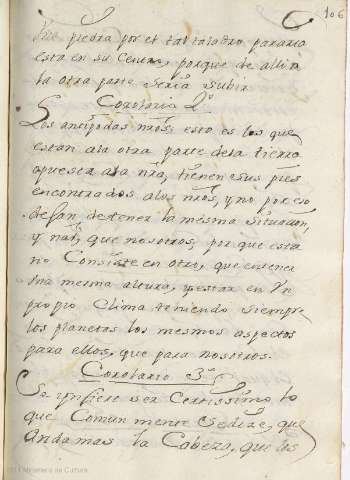 106
piedra por el tal taladro pararia
esta en su centro, porque de alli a
la otra parte seria subir
Corolario 2º
Los antipodas nr̃os, esto es los que
estan ala otra parte dela tierra
opuesta ala nr̃a, tienen sus pies
encontrados alos nr̃os, y no por eso
dejan de tener la mesma situacion,
y nat̃l, que nosotros, porque esta
no consiste en otro, que en tener
una mesma altura, y estar en Vn
propio Clima teniendo siempre
los planetas los mesmos aspectos
para ellos, que para nosotros.
Corolario 3º
Se ynfiere ser Certissimo lo
que Comunmente Sedize, que
Andamas la Cabeza, que los
Ministerio de Cultura